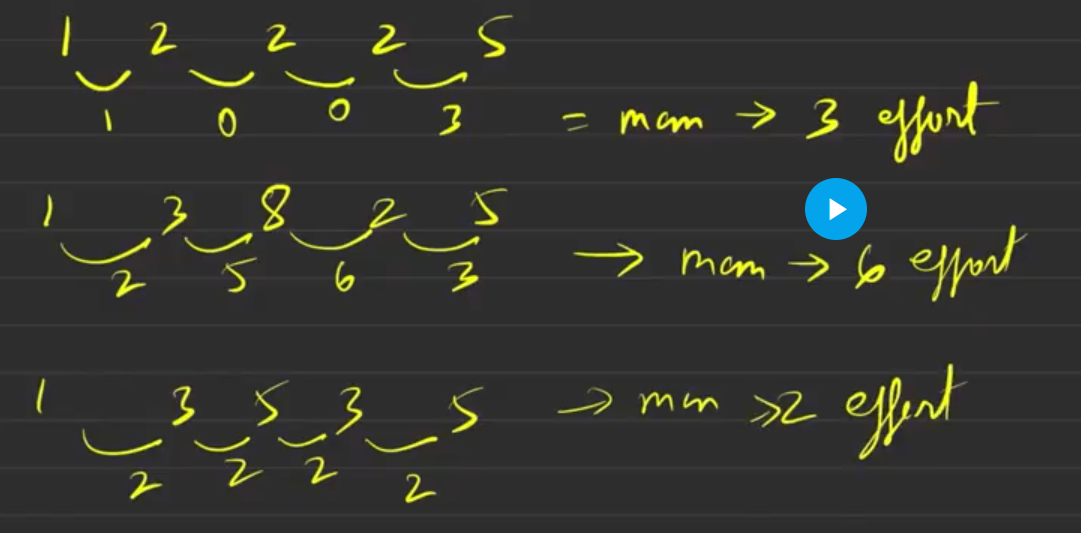 1 2 2 2 5
1 0 0 3 = max → 3 effort
1 3 8 2 5
2 5 6 3 → max → 6 effort
1 3 5 3 5 → max → 2 effort
2 2 2 2